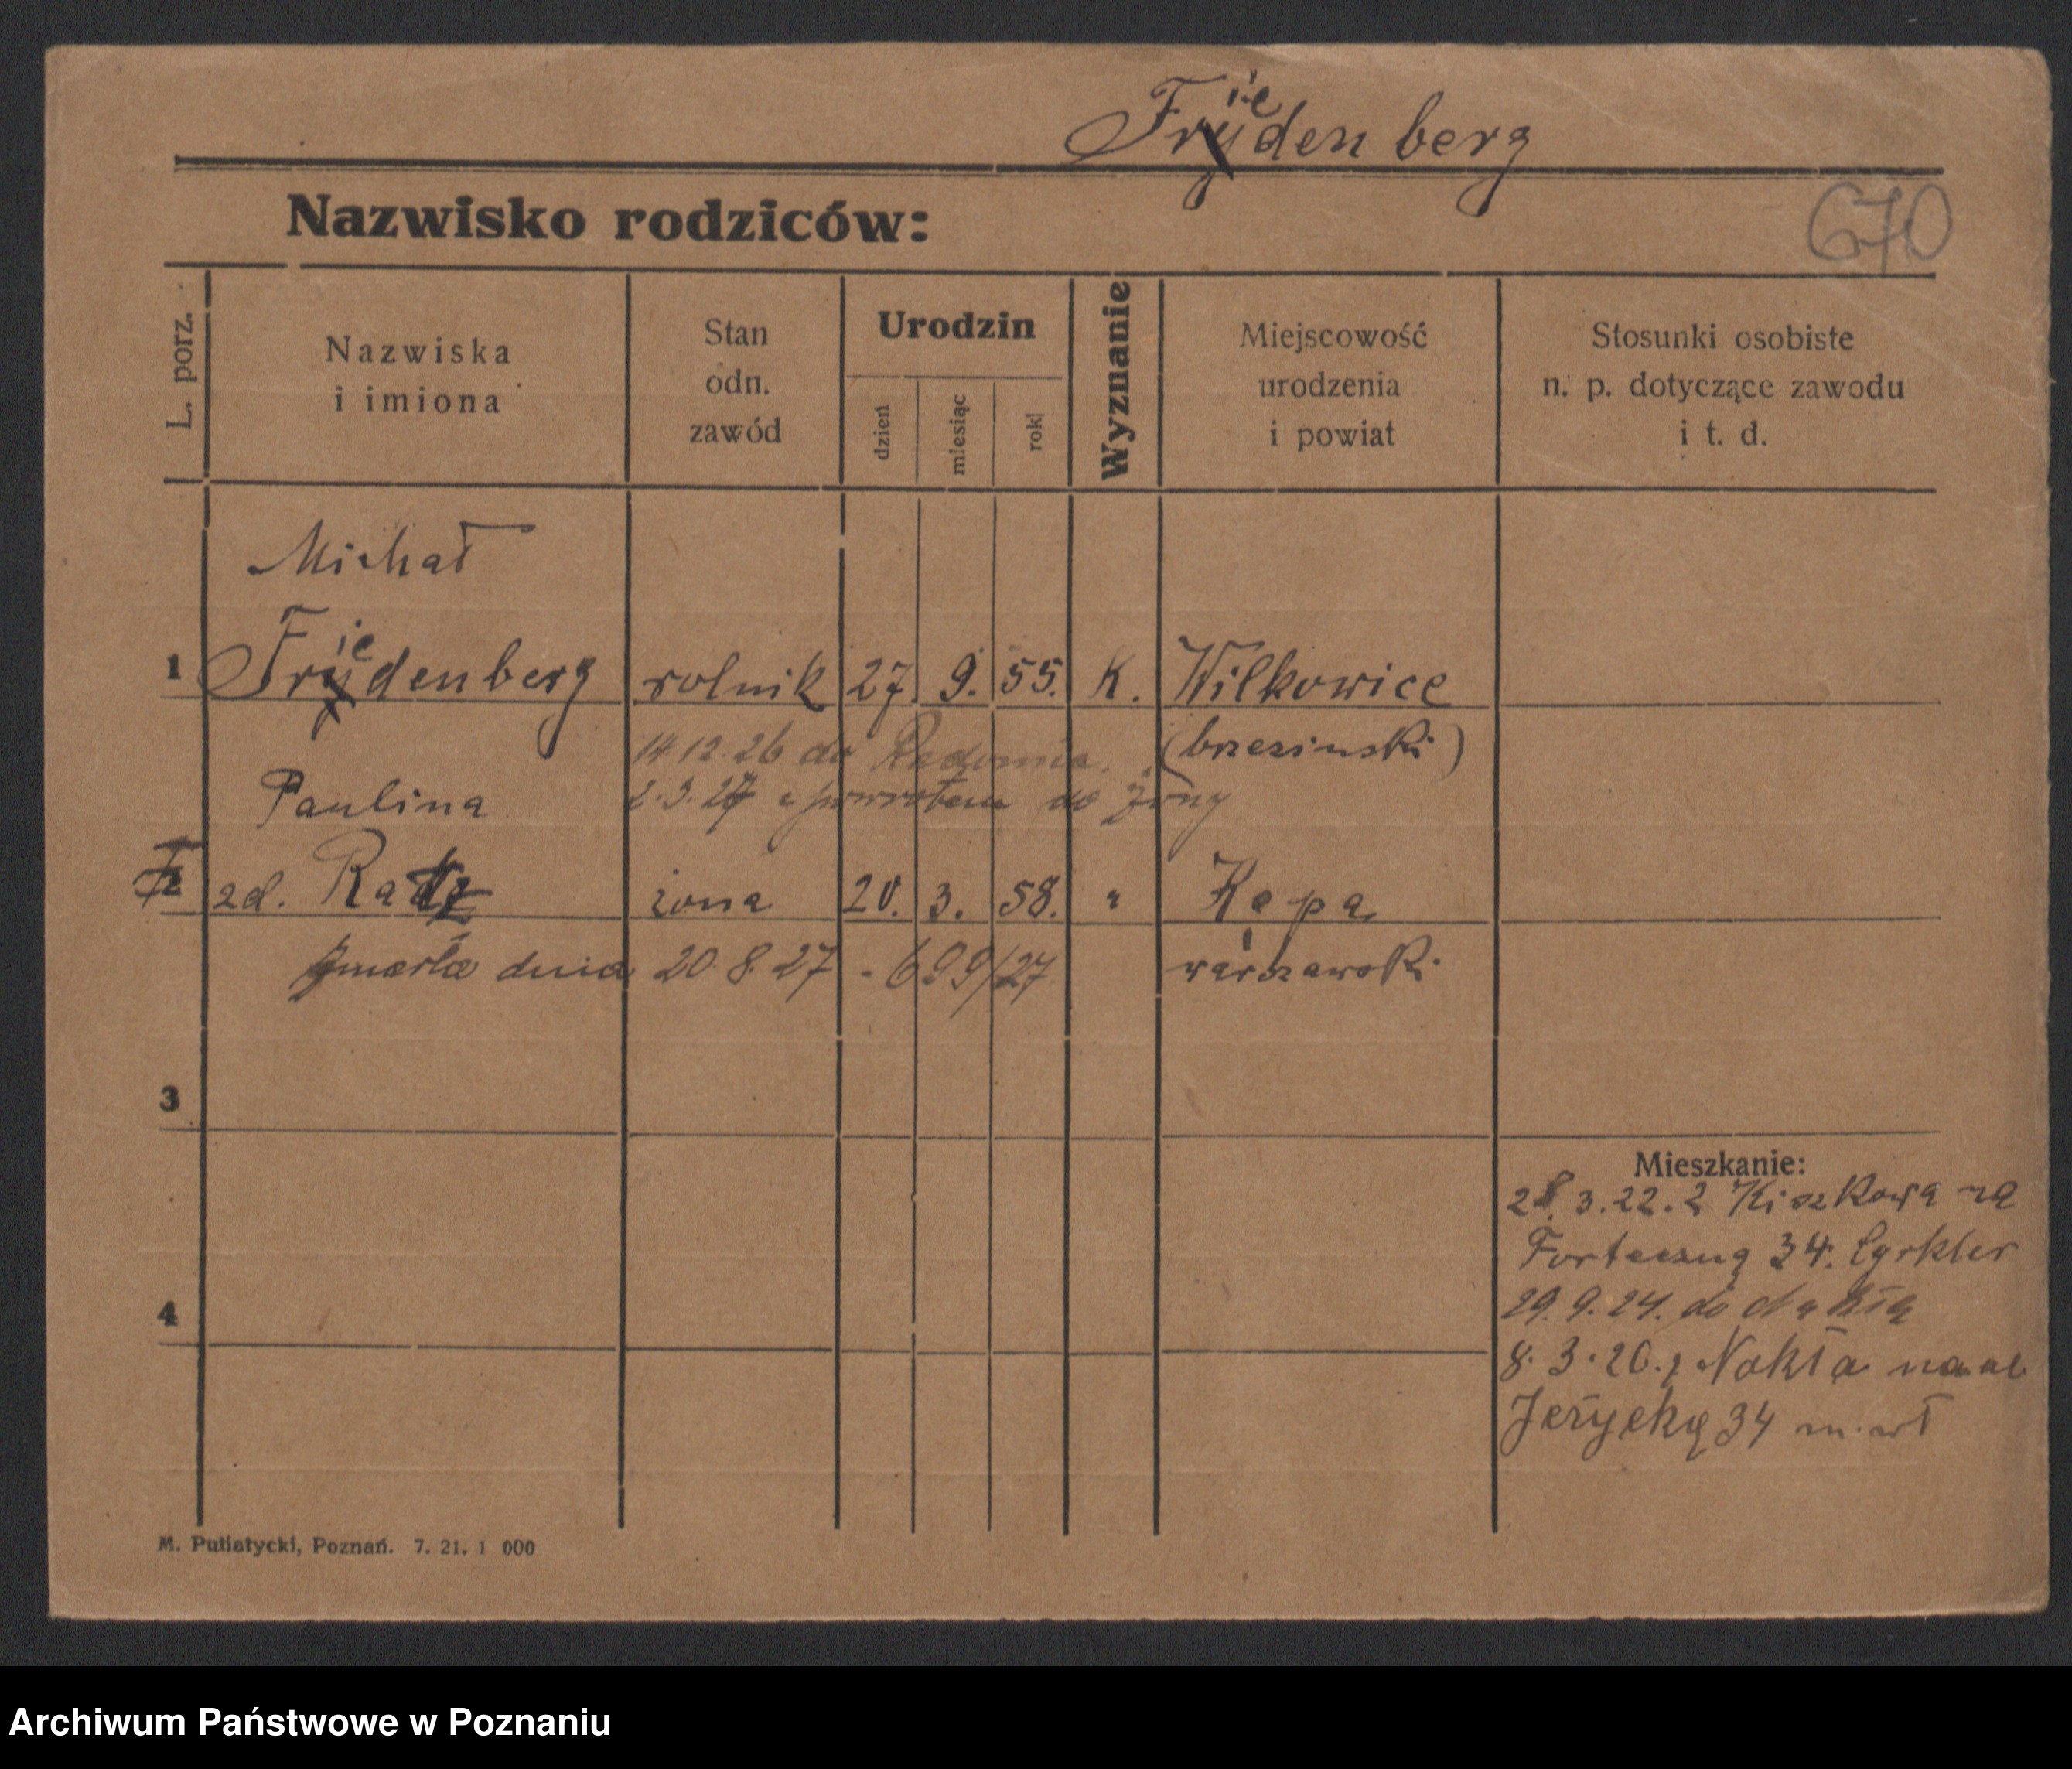 Friedenberg
Nazwisko rodziców:
670
L. porz.
Nazwiska
i imiona
Stan
odn.
zawód
Urodzin
dzień
miesiąc
rok
Wyznanie
Miejscowość
urodzenia
i powiat
Stosunki osobiste
n. p. dotyczące zawodu
i t. d.
Michał
1 Friedenberg rolnik 27. 9. 55. K. Wilkowice
(brzesinski)
14.12.26 do Radomia.
2.3.27 z powrotem do żony
Paulina
2 zd. żona 20. 3. 58. " Kępa
warszawski
Zmarła dnia 20.8.27 - 699/27
3
Mieszkanie:
28.3.22. z Kiszkowa na
Forteczną 34. Cyrkler
29.9.24. do Nakła
8.3.26. z Nakła na ul
Jeżycką 34 m. wł
4
M. Putiatycki, Poznań. 7. 21. 1 000
Archiwum Państwowe w Poznaniu